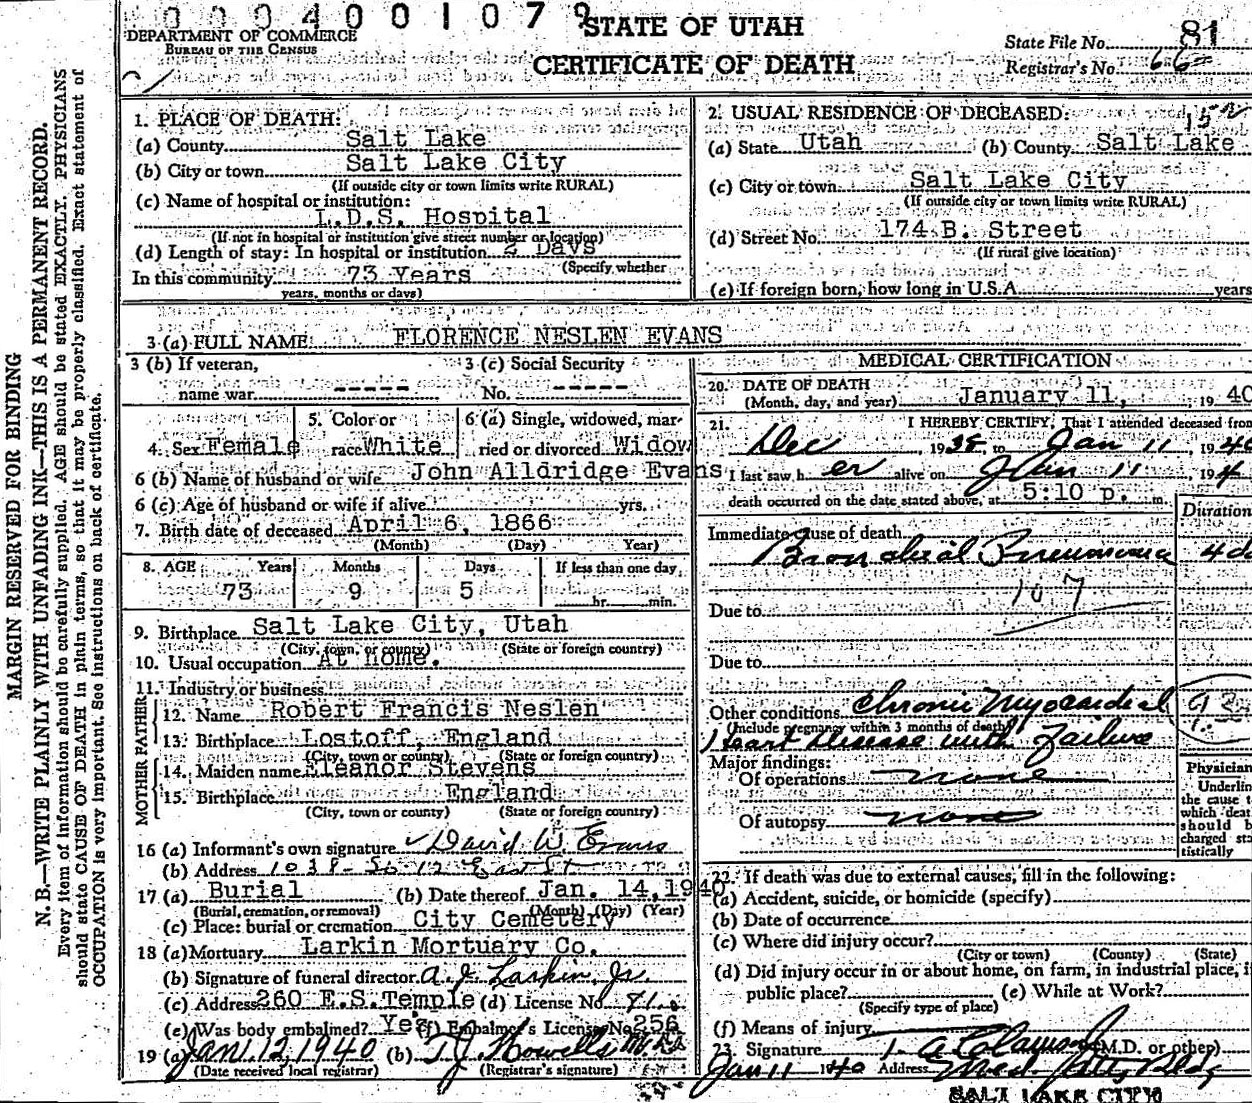 0004001079
STATE OF UTAH
DEPARTMENT OF COMMERCE
BUREAU OF THE CENSUS
CERTIFICATE OF DEATH
State File No. 81
Registrar's No. 66
MARGIN RESERVED FOR BINDING
N. B.—WRITE PLAINLY WITH UNFADING INK—THIS IS A PERMANENT RECORD.
Every item of information should be carefully supplied. AGE should be stated EXACTLY. PHYSICIANS
should state CAUSE OF DEATH in plain terms, so that it may be properly classified. Exact statement of
OCCUPATION is very important. See instructions on back of certificate.
1. PLACE OF DEATH:
(a) County Salt Lake
(b) City or town Salt Lake City
(If outside city or town limits write RURAL)
(c) Name of hospital or institution:
L.D.S. Hospital
(If not in hospital or institution give street number or location)
(d) Length of stay: In hospital or institution 2 Days
(Specify whether
In this community 73 Years
years, months or days)
2. USUAL RESIDENCE OF DECEASED:
(a) State Utah (b) County Salt Lake
(c) City or town Salt Lake City
(If outside city or town limits write RURAL)
(d) Street No. 174 B. Street
(If rural give location)
(e) If foreign born, how long in U.S.A. years
3 (a) FULL NAME FLORENCE NESLEN EVANS
3 (b) If veteran,
name war -----
3 (c) Social Security
No. -----
4. Sex Female
5. Color or
race White
6 (a) Single, widowed, mar-
ried or divorced Widow
6 (b) Name of husband or wife John Alldridge Evans
6 (c) Age of husband or wife if alive yrs.
7. Birth date of deceased April 6, 1866
(Month) (Day) Year)
8. AGE Years Months Days If less than one day
73 9 5 hr. min.
9. Birthplace Salt Lake City, Utah
(City, town, or county) (State or foreign country)
10. Usual occupation At home.
11. Industry or business
FATHER
12. Name Robert Francis Neslen
13. Birthplace Lostoff, England
(City, town or county) (State or foreign country)
MOTHER
14. Maiden name Eleanor Stevens
15. Birthplace England
(City, town or county) (State or foreign country)
16 (a) Informant's own signature David W. Evans
(b) Address 1038 - So 12 East St
17 (a) Burial (b) Date thereof Jan. 14, 1940
(Burial, cremation, or removal) (Month) (Day) (Year)
(c) Place: burial or cremation City Cemetery
18 (a) Mortuary Larkin Mortuary Co.
(b) Signature of funeral director A. J. Larkin, Jr.
(c) Address 260 E.S.Temple (d) License No. 71
(e) Was body embalmed? Yes (f) Embalmer's License No. 256
19 (a) JAN. 12, 1940 (b) T. J. Howells
(Date received local registrar) (Registrar's signature)
MEDICAL CERTIFICATION
20. DATE OF DEATH
(Month, day, and year) January 11, 19 40
21. I HEREBY CERTIFY, That I attended deceased from
Dec, 1938, to Jan 11, 1940
I last saw h er alive on Jan 11 194
death occurred on the date stated above, at 5:10 p. m.
Duration
Immediate cause of death
Bronchial Pneumonia 4 d
107
Due to
Due to
Other conditions Chronic Myocardial
(Include pregnancy within 3 months of death)
Heart Disease with Failure
Major findings:
Of operations none
Of autopsy none
Physician
Underlin
the cause t
which deat
should b
charged sta
tistically
22. If death was due to external causes, fill in the following:
(a) Accident, suicide, or homicide (specify)
(b) Date of occurrence
(c) Where did injury occur?
(City or town) (County) (State)
(d) Did injury occur in or about home, on farm, in industrial place, i
public place? (e) While at Work?
(Specify type of place)
(f) Means of injury
23. Signature (M.D. or other)
Jan 11 1940 Address Med. Bldg
SALT LAKE CITY